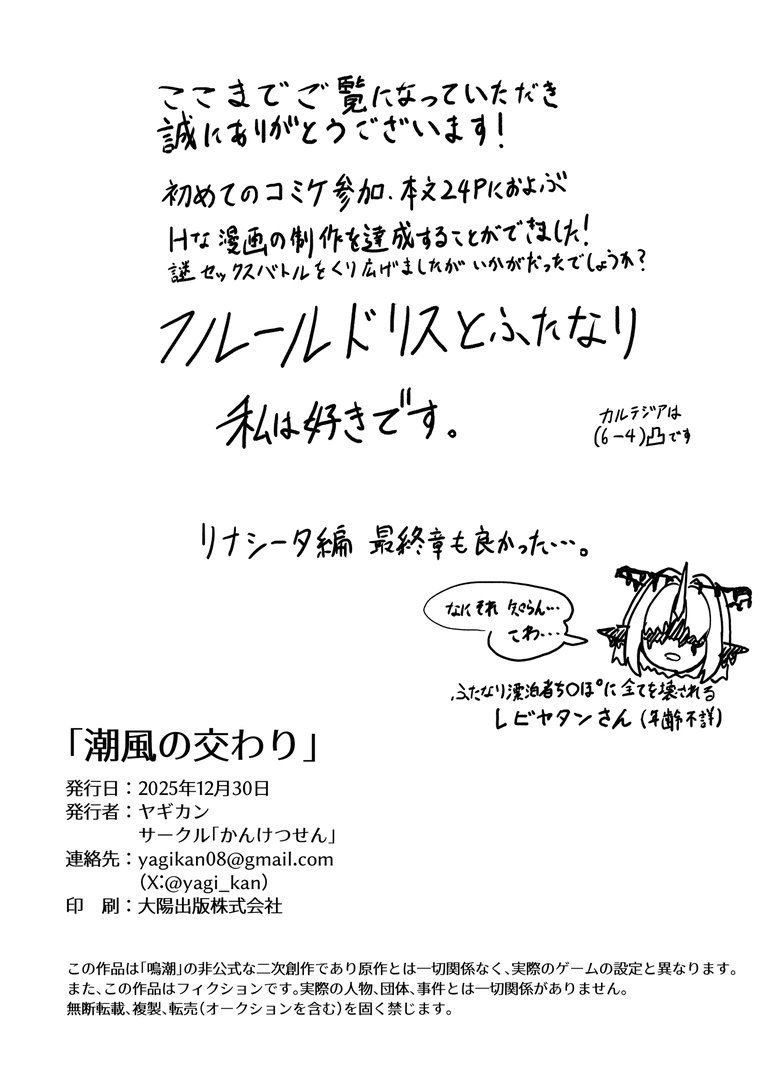 ここまでご覧になっていただき
誠にありがとうございます!
初めてのコミケ参加、本文24Pにおよぶ
Hな漫画の制作を達成することができました!
謎セックスバトルをくり広げましたがいかがだったでしょうか?
フルールドリスとふたなり
私は好きです。
カルテジアは
(6-4)凸です
リナシータ編 最終章も良かった…。
なにそれ 知らん…
こわ…
ふたなり漂泊者ち〇ぽに全てを壊される
レビヤタンさん(年齢不詳)
「潮風の交わり」
発行日:2025年12月30日
発行者:ヤギカン
サークル「かんけつせん」
連絡先:yagikan08@gmail.com
(X:@yagi_kan)
印 刷:大陽出版株式会社
この作品は「鳴潮」の非公式な二次創作であり原作とは一切関係なく、実際のゲームの設定と異なります。
また、この作品はフィクションです。実際の人物、団体、事件とは一切関係がありません。
無断転載、複製、転売(オークションを含む)を固く禁じます。